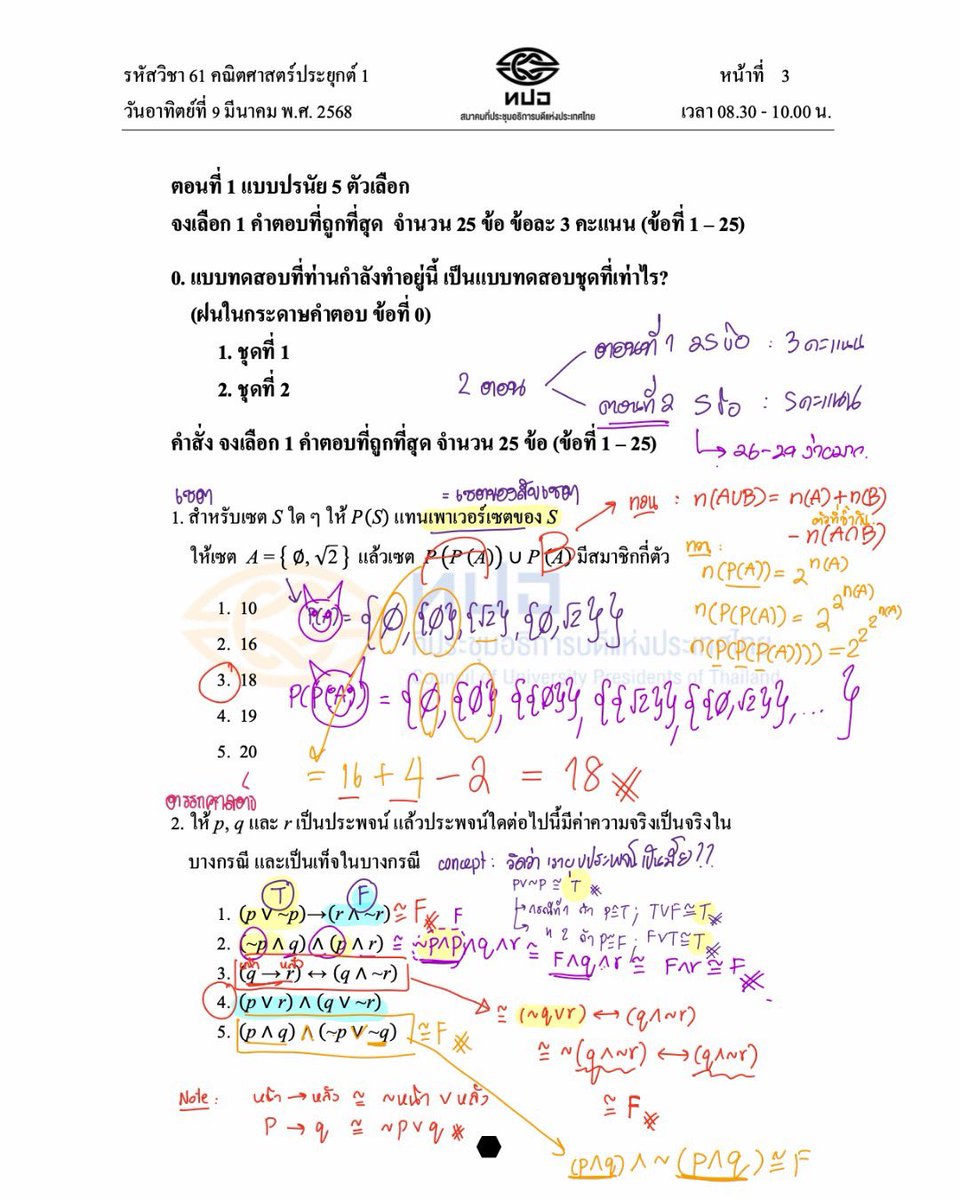 รหัสวิชา 61 คณิตศาสตร์ประยุกต์ 1
วันอาทิตย์ที่ 9 มีนาคม พ.ศ. 2568
ทปอ
สมาคมที่ประชุมอธิการบดีแห่งประเทศไทย
หน้าที่ 3
เวลา 08.30 - 10.00 น.
ตอนที่ 1 แบบปรนัย 5 ตัวเลือก
จงเลือก 1 คำตอบที่ถูกที่สุด จำนวน 25 ข้อ ข้อละ 3 คะแนน (ข้อที่ 1 – 25)
0. แบบทดสอบที่ท่านกำลังทำอยู่นี้ เป็นแบบทดสอบชุดที่เท่าไร?
(ฝนในกระดาษคำตอบ ข้อที่ 0)
1. ชุดที่ 1
2. ชุดที่ 2
2 ตอน
ตอนที่ 1 25 ข้อ : 3 คะแนน
ตอนที่ 2 5 ข้อ : 5 คะแนน
↳ 26-29 ง่ายมาก.
คำสั่ง จงเลือก 1 คำตอบที่ถูกที่สุด จำนวน 25 ข้อ (ข้อที่ 1 – 25)
เซต
= เซตของสับเซต
1. สำหรับเซต S ใด ๆ ให้ P(S) แทนเพาเวอร์เซตของ S
ให้เซต A = { ∅, √2 } แล้วเซต P(P(A)) ∪ P(A) มีสมาชิกกี่ตัว
ทอน : n(A∪B) = n(A)+n(B)
ตัวที่ซ้ำกัน
- n(A∩B)
ทอน :
n(P(A)) = 2^n(A)
n(P(P(A))) = 2^2^n(A)
n(P(P(P(A)))) = 2^2^2^n(A)
1. 10
2. 16
3. 18
4. 19
5. 20
P(A) = {∅, {∅}, {√2}, {∅, √2}}
ทปอ
ที่ประชุมอธิการบดีแห่งประเทศไทย
Council of University Presidents of Thailand
P(P(A)) = {∅, {∅}, {{∅}}, {{√2}}, {{∅, √2}}, ... }
= 16 + 4 - 2 = 18
ตรรกศาสตร์
2. ให้ p, q และ r เป็นประพจน์ แล้วประพจน์ใดต่อไปนี้มีค่าความจริงเป็นจริงใน
บางกรณี และเป็นเท็จในบางกรณี
concept :
p∨~p ≅ T
↳ กรณีที่ 1 ถ้า p≅T ; T∨F≅T
↳ " 2 ถ้า p≅F ; F∨T≅T
T F
1. (p ∨ ~p)→(r ∧ ~r) ≅ F
F
2. (~p ∧ q) ∧ (p ∧ r) ≅ ~p∧p∧q∧r ≅ F∧q∧r ≅ F∧r ≅ F
หน้า หลัง
3. (q → r) ↔ (q ∧ ~r)
4. (p ∨ r) ∧ (q ∨ ~r)
5. (p ∧ q) ∧ (~p ∨ ~q) ≅ F
≅ (~q∨r) ↔ (q∧~r)
≅ ~(q∧~r) ↔ (q∧~r)
≅ F
Note : หน้า → หลัง ≅ ~หน้า ∨ หลัง
P → q ≅ ~p∨q
(p∧q) ∧ ~(p∧q) ≅ F